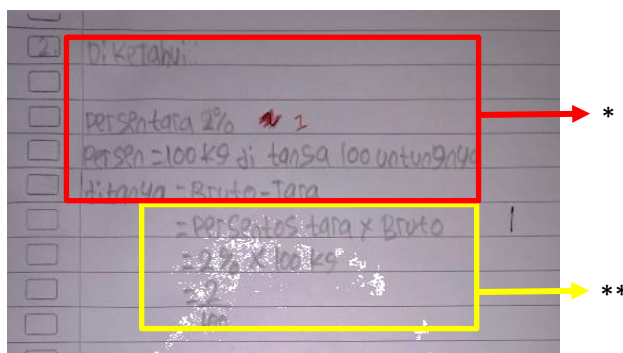 2. Diketahui:
persentara 2% 1
*
persen = 100 kg di tansa 100 untungnya
ditanya = Bruto - Tara
= persentos tara x Bruto
= 2% x 100 kg
= 2
**
100